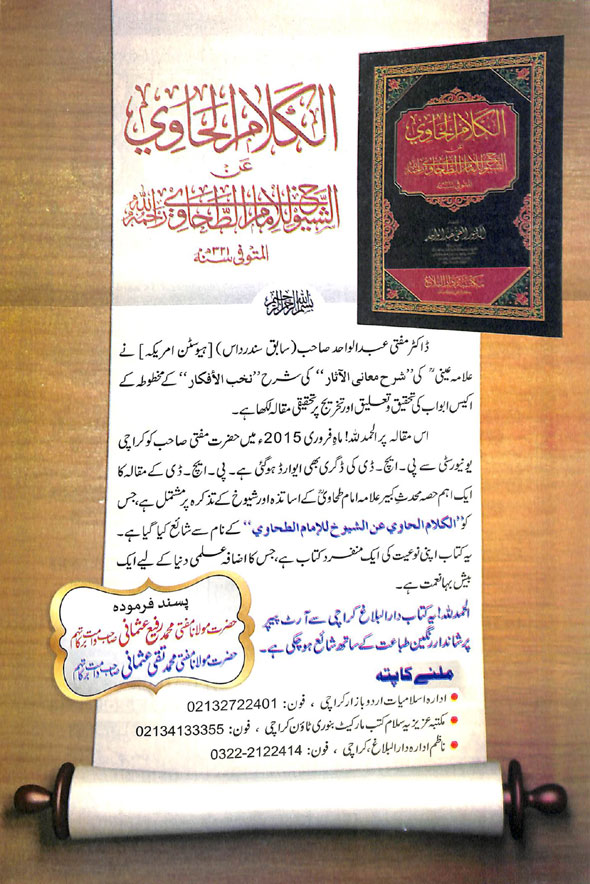 الكلام الحاوي
عن
الشيوخ للإمام الطحاوي رحمه الله
المتوفى سنة ٣٢١ھ
الكلام الحاوي
عن
الشيوخ للإمام الطحاوي رحمه الله
بسم اللہ الرحمن الرحیم
ڈاکٹر مفتی عبدالواحد صاحب (سابق سندرداس) [ہیوسٹن امریکہ] نے
علامہ عینیؒ کی ”شرح معانی الآثار“ کی شرح ”نخب الأفكار“ کے مخطوطہ کے
اکیس ابواب کی تحقیق و تعلیق اور تخریج پر تحقیقی مقالہ لکھا ہے۔
اس مقالہ پر الحمدللہ! ماہِ فروری 2015ء میں حضرت مفتی صاحب کو کراچی
یونیورسٹی سے پی۔ ایچ۔ ڈی کی ڈگری بھی ایوارڈ ہوگئی ہے۔ پی۔ ایچ۔ ڈی کے مقالہ کا
ایک اہم حصہ محدثِ کبیر علامہ امام طحاویؒ کے اساتذہ اور شیوخ کے تذکرہ پر مشتمل ہے، جس
کو ”الكلام الحاوي عن الشيوخ للإمام الطحاوي“ کے نام سے شائع کیا گیا ہے۔
یہ کتاب اپنی نوعیت کی ایک منفرد کتاب ہے، جس کا اضافہ علمی دنیا کے لیے ایک
بیش بہا نعمت ہے۔
الحمدللہ! یہ کتاب دارالبلاغ کراچی سے آرٹ پیپر
پر شاندار رنگین طباعت کے ساتھ شائع ہوچکی ہے۔
پسند فرمودہ
حضرت مولانا مفتی محمد رفیع عثمانی صاحب دامت برکاتہم
حضرت مولانا مفتی محمد تقی عثمانی صاحب دامت برکاتہم
ملنے کا پتہ
ادارہ اسلامیات اردو بازار کراچی ، فون: 02132722401
مکتبہ عزیزیہ سلام کتب مارکیٹ بنوری ٹاؤن کراچی ، فون: 02134133355
ناظم ادارہ دارالبلاغ، کراچی ، فون: 0322-2122414